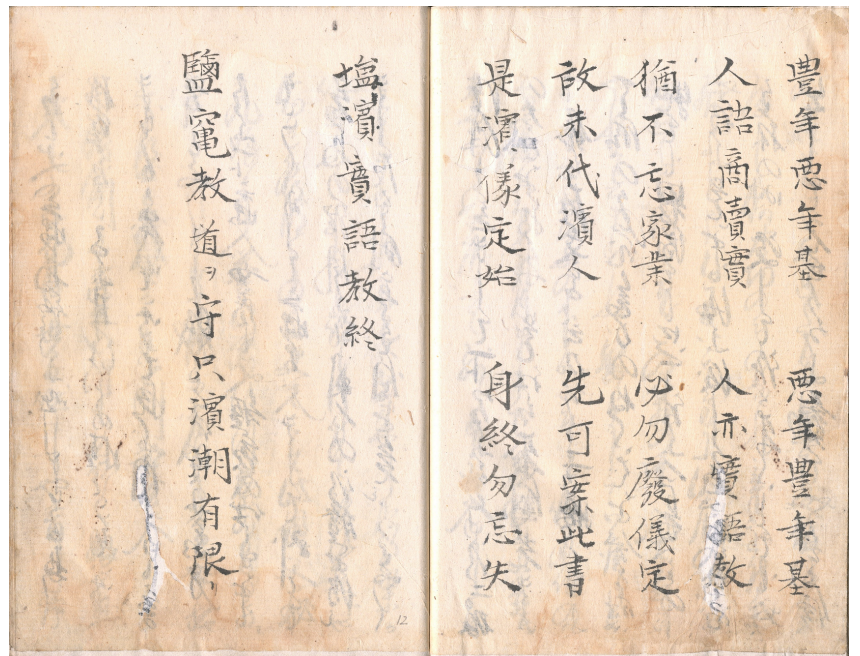 豊年悪年基 悪年豊年基
人語商賣實 人亦實語教
猶不忘家業 必勿廢儀定
故未代濱人 先可案此書
是濱様定始 身終勿忘失
塩濱實語教終
鹽竃教道ヲ守只濱潮有限リ
12